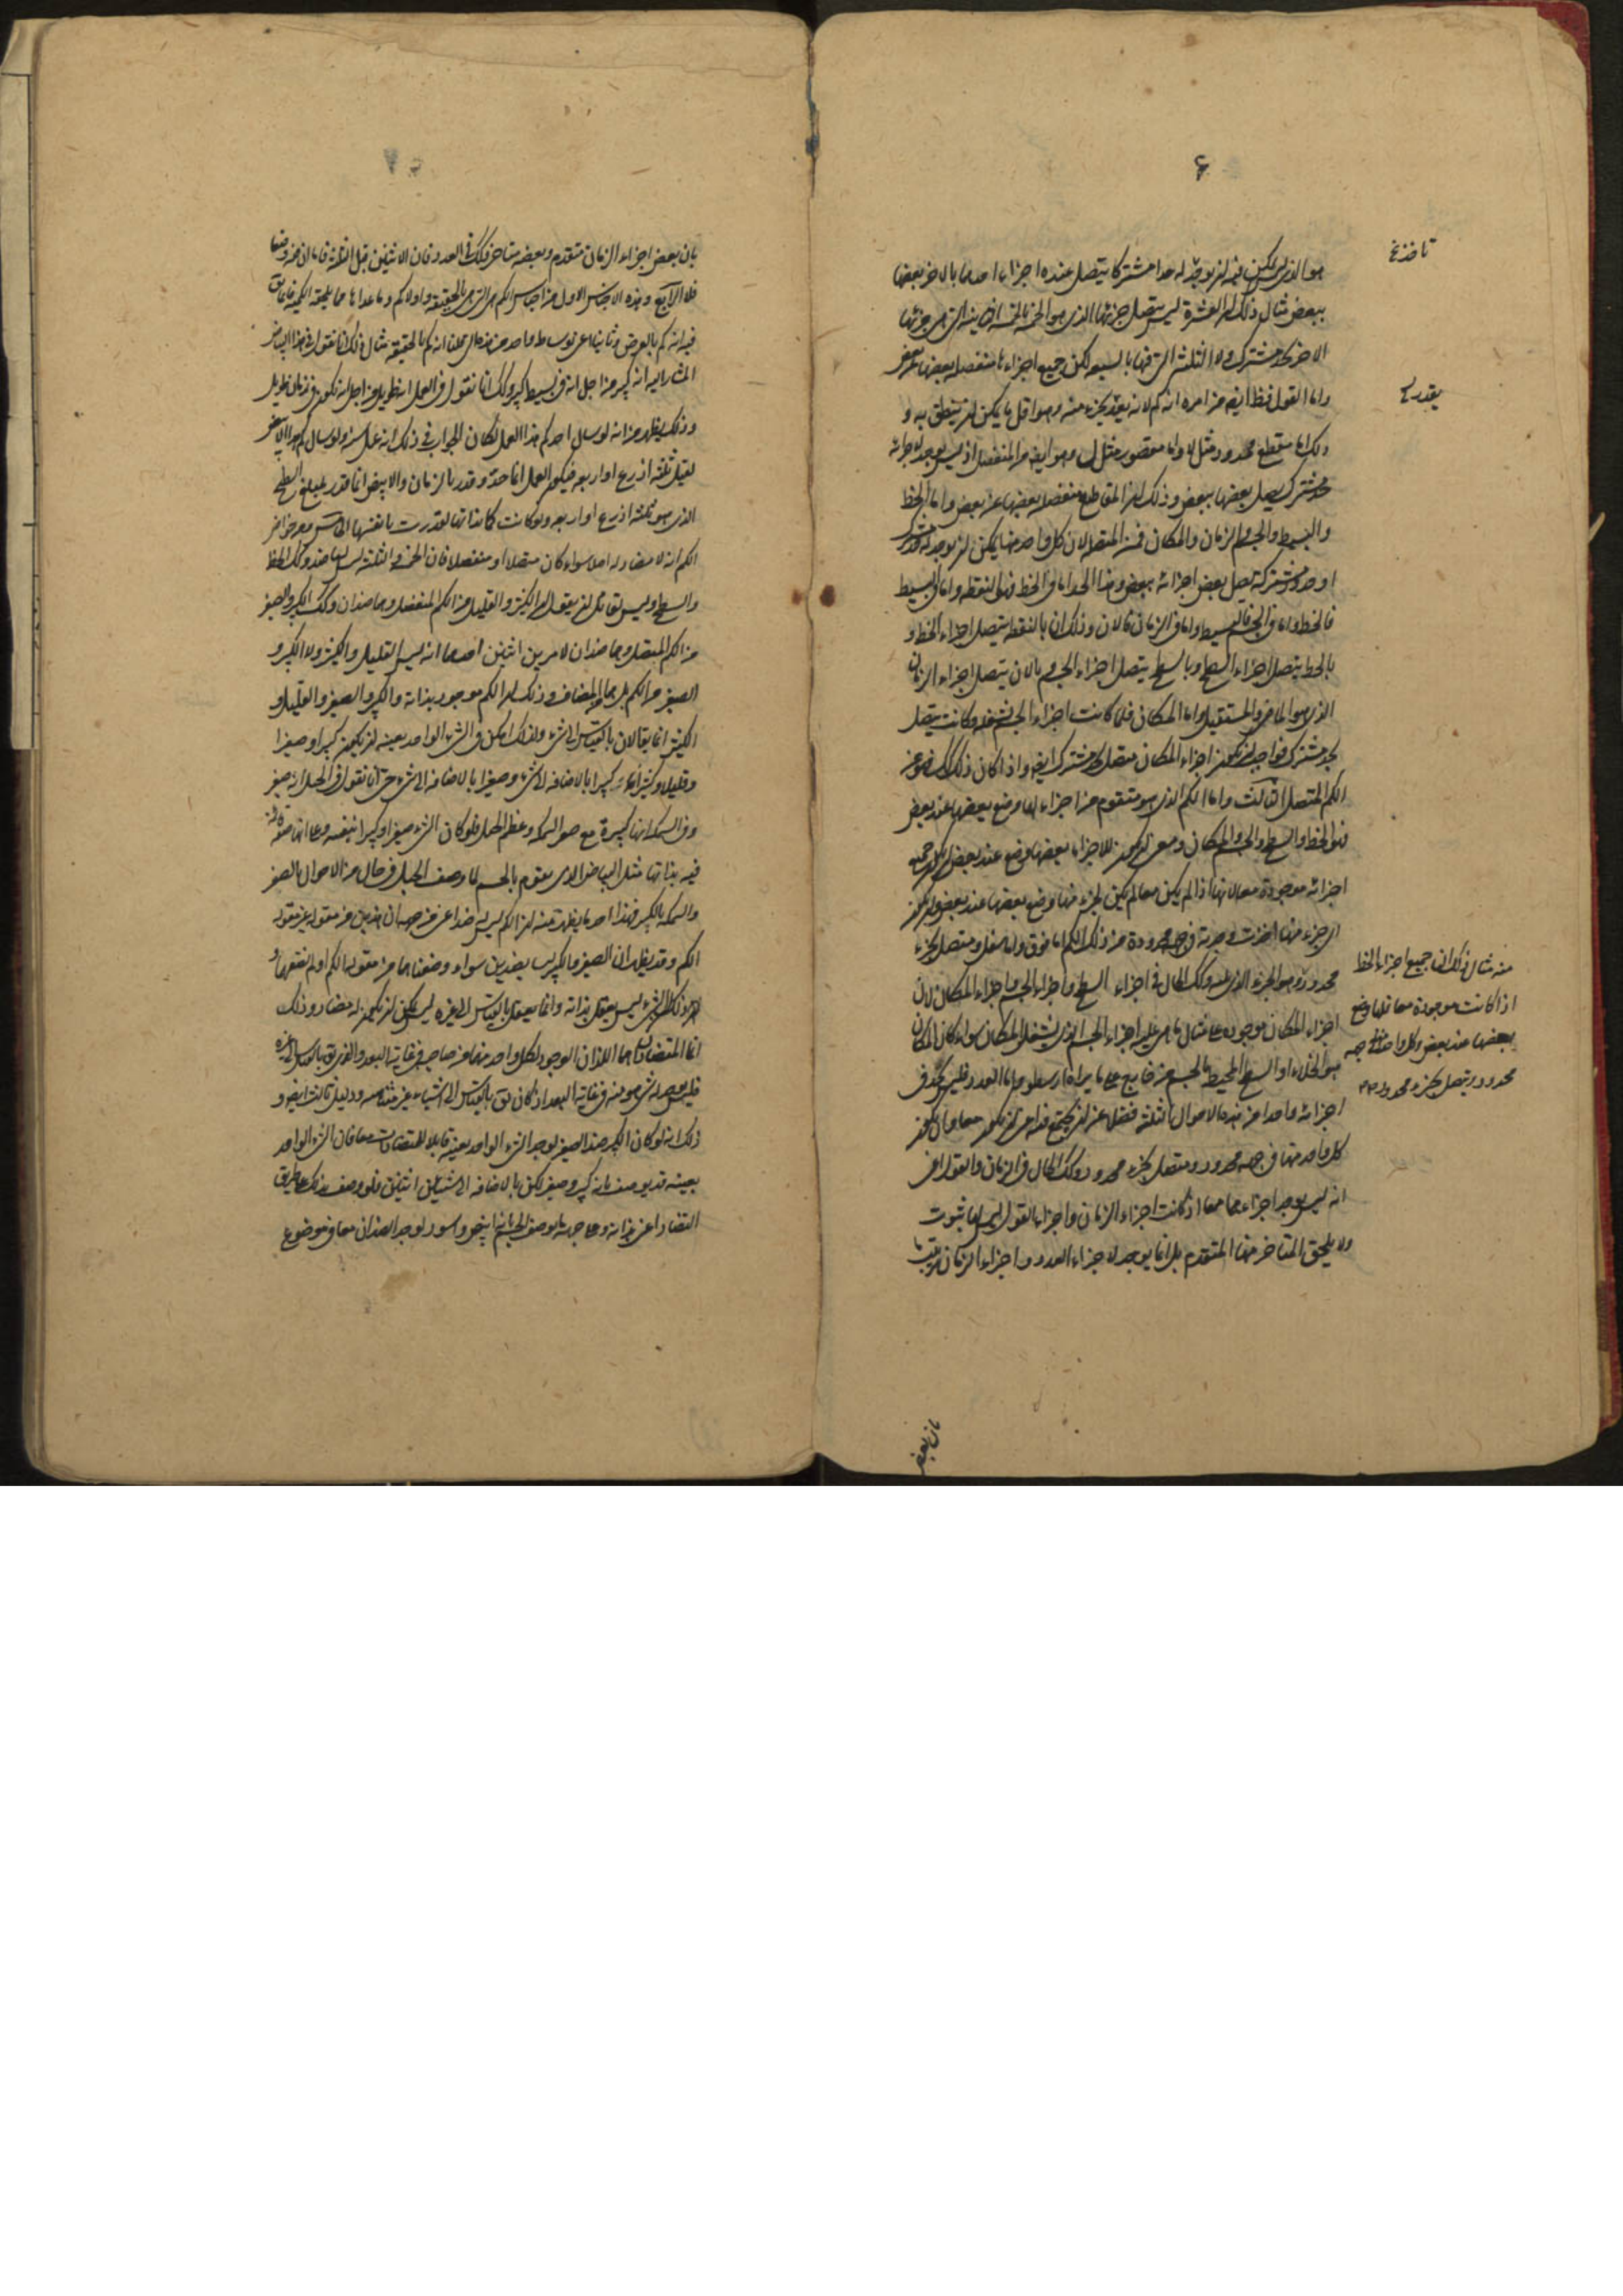 ٤
هو الذي ليس يمكن فيه ان يوجد له حدا مشتركا يتصل عنده اجزاءه احدهما بالاخر بعضها
ببعض مثال ذلك ان العشرة ليس يتصل جزئها الذي هو الخمسة بالخمسة الثانية التي هي جزئها
الاخر بحد مشترك ولا الثلثة التي فيها بالسبعه لكن جميع اجزاءها منفصله بعضها عن بعض
واما القول فظ ايض من امره انه كم لانه يقدر بجزء منه وهو اقل ما يمكن ان ينطق به و
ذلك اما مقطع ممدود مثل لا واما مقصور مثل ل وهو ايض من المنفصل اذ ليس يوجد لاجزائه
حد مشترك يصل بعضها ببعض وذلك ان المقاطع منفصله بعضها عن بعض واما الخط
والبسيط والجسم والزمان والمكان فمن المتصله لان كل واحد منها يمكن ان يوجد له حد مشترك
او حدود مشتركة تصل بعض اجزائه ببعض وهذا الحد اما في الخط فهو النقطه واما في البسيط
فالخط واما في الجسم فالبسيط واما في الزمان فالان وذلك ان بالنقطه يتصل اجزاء الخط و
بالخط يتصل اجزاء السطح وبالسطح يتصل اجزاء الجسم وبالان يتصل اجزاء الزمان
الذي هو الماضي والمستقبل واما المكان فلما كانت اجزاء الجسم تشغله وكانت يتصل
بحد مشترك فواجب ان يكون اجزاء المكان متصل بحد مشترك ايض واذا كان ذلك كك فهو من
الكم المتصل الثالث واما الكم الذي هو متقوم من اجزاء لها وضع بعضها عند بعض
فهو الخط والسطح والجسم والمكان ومعنى ان يكون للاجزاء بعضها وضع عند بعض ان يكون جميع
اجزائه موجودة معا لانها اذا لم يكن معا لم يكن لجزء منها وضع بعضها عند بعض وان يكون
اي جزء منها اخذت وجدته في جهة محدودة من ذلك الكم اما فوق واما اسفل ومتصل بجزء
محدود وهو الجزء الذي يليه وكك الحال في اجزاء السطح واجزاء الجسم واجزاء المكان لان
اجزاء المكان موجوده على مثال ما هي عليه اجزاء الجسم الذي يشغل المكان سواء كان المكان
هو الخلاء او السطح المحيط بالجسم من خارج على ما يراه ارسطو واما العدد فليس تجد في
اجزائه واحدا من هذه الاحوال الثلثه فضلا عن ان يجتمع فيه اعني ان يكون معا وان يكون
كل واحد منها في جهه محدود ومتصل بجزء محدود وكك الحال في الزمان والقول اعني
انه ليس يوجد اجزاءهما معا اذ كانت اجزاء الزمان واجزاء القول ليس لها ثبوت
ولا يلحق المتاخر منها المتقدم بل انما يوجد لاجزاء العدد واجزاء الزمان ترتيب ما
تاخذ خ
يقدر
منه مثال ذلك ان جميع اجزاء الخط
اذا كانت موجودة معا فلها وضع
بعضها عند بعض وكل واحد في جهه
محدود ويتصل بجزء محدود
بان بعض
بان بعض اجزاء الزمان متقدم وبعضه متاخر وكك في العدد فان الاثنين قبل الثلثة فاما ان له وضعا
فلا الرابع وهذه الاجناس الاول من اجناس الكم هي التي هي بالحقيقة واولا كم وما عداها مما يلحقه الكميه فانما يق
فيه انه كم بالعرض وثانيا اعني بوساطه واحد من هذه التي قلنا انه كم بالحقيقه مثال ذلك انا نقول في هذا البياض
المشار اليه انه كبير من اجل انه في بسيط كبير وكك انا نقول في العمل انه طويل من اجل انه يكون في زمان طويل
وذلك يظهر من انه لو سال احد كم هذا العمل لكان الجواب في ذلك انه عمل سنه ولو سال كم هذا الابيض
لقيل ثلثه اذرع او اربعه فيكون العمل انما حد وقدر بالزمان والابيض انما قدر بمبلغ السطح
الذي هو ثلثه اذرع او اربعه ولو كانت كما بذاتها لقدرت بانفسها الخامس ومن خواص
الكم انه لا مضاد له اصلا سواء كان متصلا او منفصلا فان الخمسة والثلثة ليس لها ضد وكك الخط
والسطح وليس لقائل ان يقول ان الكثير والقليل من الكم المنفصل وهما ضدان وكك الكبير والصغير
من الكم المتصل وهما ضدان لامرين اثنين احدهما انه ليس القليل والكثير ولا الكبير و
الصغير من الكم بل هما من المضاف وذلك ان الكم موجود بذاته والكبير والصغير والقليل و
الكثير انما يقالان بالقياس الى شيء ولذلك امكن في الشيء الواحد بعينه ان يكون كبيرا وصغيرا
وقليلا وكثيرا كبيرا بالاضافه الى شيء وصغيرا بالاضافه الى شيء حتى انا نقول في الجبل انه صغير
وفي السمكه انها كبيرة مع صغر السمكه وعظم الجبل فلو كان الشيء صغيرا وكبيرا بنفسه وعلى انها صفه قائمة
فيه بذاتها مثل البياض الذي يقوم بالجسم لما وصف الجبل في حال من الاحوال بالصغر
والسمكه بالكبر فهذا احد ما يظهر منه ان الكم ليس له ضد اعني من جهه ان هذين من مقوله غير مقوله
الكم وقد يظهر ان الصغير والكبير ليسا بضدين سواء وضعناهما من مقوله الكم او لم نضعهما و
ذلك ان الشيء ليس يعقل بذاته وانما يعقل بالقياس الى غيره ليس يمكن ان يكون له مضاد وذلك
انما المتضادان هما اللذان الوجود لكل واحد منهما من صاحبه في غاية البعد والذي يق بالقياس الى غيره
فليس يوجد له شيء هو منه في غاية البعد اذ كان يق بالقياس الى اشياء غير متناهيه ودليل ثالث ايض و
ذلك انه لو كان الكبير ضد الصغير لوجد الشيء الواحد بعينه قابلا للمتضادات معا فان الشيء الواحد
بعينه قد يوصف بانه كبير وصغير لكن بالاضافه الى شيئين اثنين فلو وصف بذلك على طريق
التضاد اعني بذاته وعلى جهه ما يوصف الجسم بانه ابيض واسود لوجد الضدان معا في موضوع